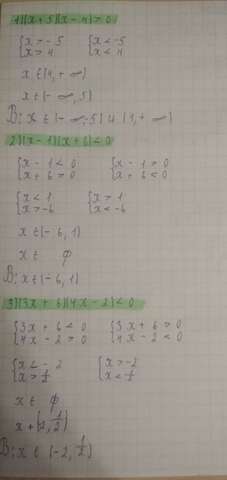 1)(x+5)(x-4)>0
{x>-5 {x<-5
{x>4 {x<4
x∈(4,+∞)
x∈(-∞,5)
В: x∈(-∞,-5)∪(4,+∞)
2)(x-1)(x+6)<0
{x-1<0 {x-1>0
{x+6>0 {x+6<0
{x<1 {x>1
{x>-6 {x<-6
x∈(-6,1)
x∈ ϕ
В: x∈(-6,1)
3)(3x+6)(4x-2)<0
{3x+6<0 {3x+6>0
{4x-2>0 {4x-2<0
{x<-2 {x>-2
{x>1/2 {x<1/2
x∈ ϕ
x∈(-2,1/2)
В: x∈(-2,1/2)